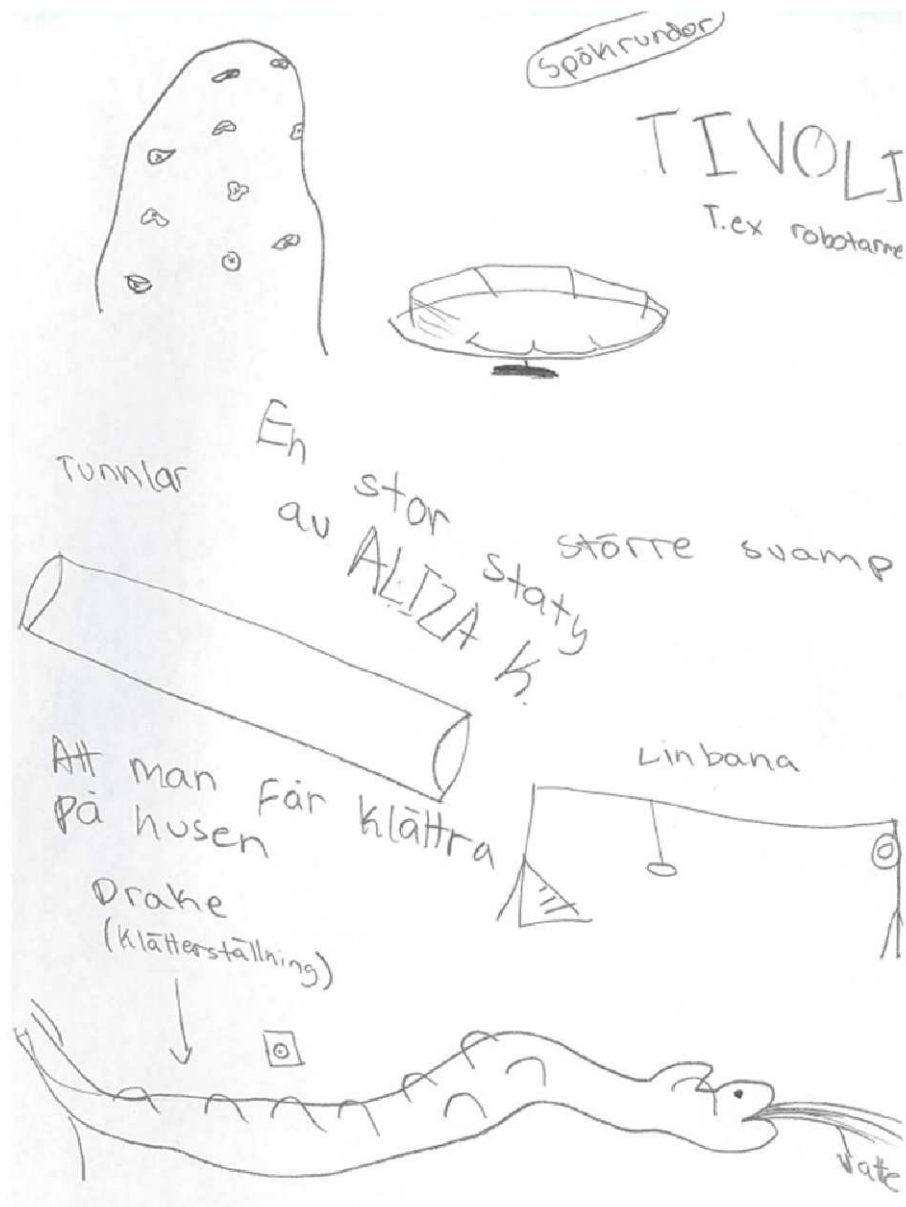 Spökrundor
TIVOLI
T.ex robotarme
Tunnlar
En stor staty
av ALIZA K
större svamp
Linbana
Att man får klättra
på husen
Drake
(klätterställning)
Vatte